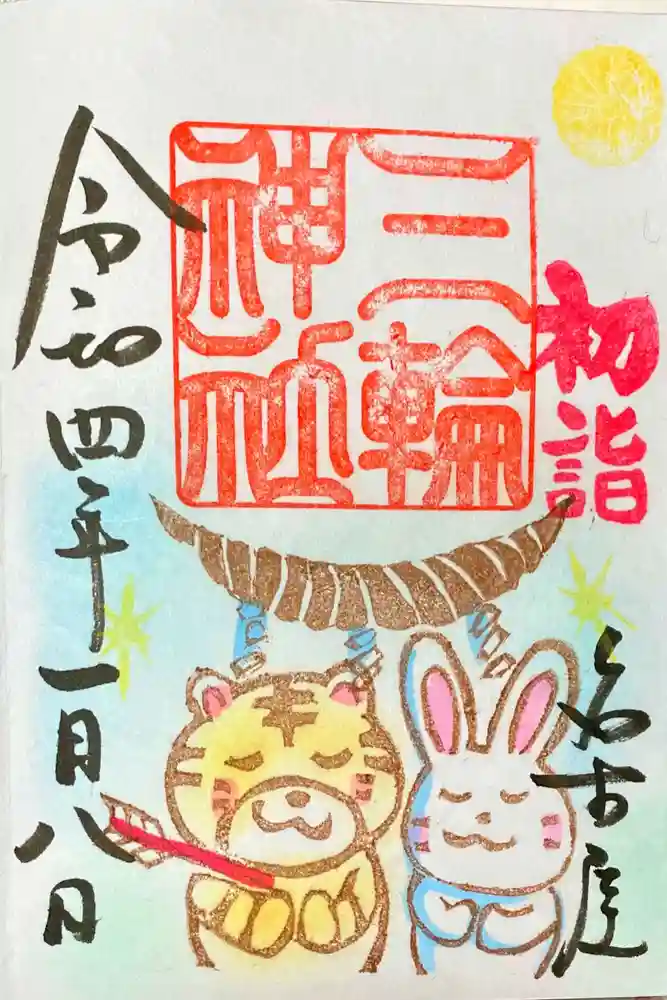 初詣
名古屋
三輪
神社
令和四年一月八日